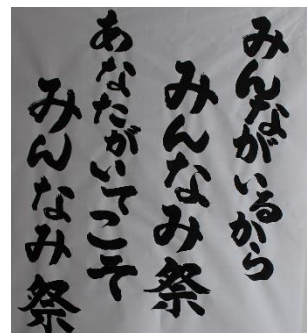 みんながいるから
みんなみ祭
あなたがいてこそ
みんなみ祭